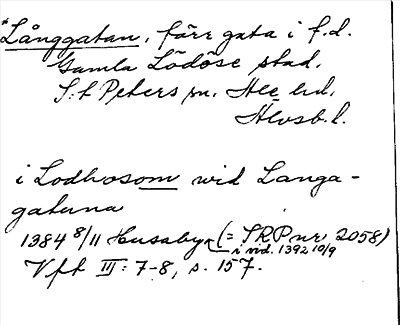 *Långgatan, förr gata i f.d.
Gamla Lödöse stad,
S:t Peters sn, Ale hd,
Älvsb.l.
i Lodhosom wid Langa-
gatuna
1384 8/11 Husaby (= SRP nr 2058)
i vid. 1392 10/9
Vft III: 7-8, s. 157.